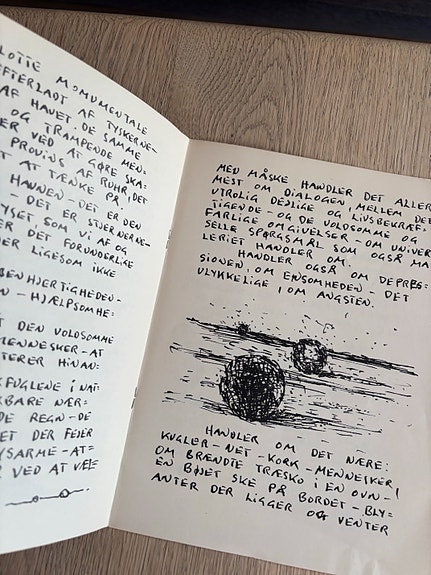 LOTTE MONUMENTALE
EFTERLADT AF TYSKERNE-
AF HAVET. DE SAMME
OG TRAMPENDE MEN-
ER VED AT GØRE SKA:
PROVINS AF RUHR, DET
T AT TÆNKE PÅ I
HAVNEN - DET ER DEN
- DET ER STJERNERNE-
LYSET SOM VI AF OG
ER DET FORUNDERLIGE
DER LIGESOM IKKE
ENHJERTIGHEDEN-
N - HJÆLPSOMHE:
T DEN VOLDSOMME
MENNESKER - AT
TERER HINAN:
KFUGLENE I NAT:
RBARE NÆR:
DE REGN - DE
ET DER FEJER
YSARME - AT=
R VED AT VÆL=
MEN MÅSKE HANDLER DET ALLER
MEST OM DIALOGEN MELLEM DET
UTROLIG DEJLIGE OG LIVSBEKRÆF:
TIGENDE - OG DE VOLDSOMME OG
FARLIGE OMGIVELSER - OM UNIVER
SELLE SPØRGSMÅL SOM OGSÅ MA
LERIET HANDLER OM.
HANDLER OGSÅ OM DEPRES=
SIONEN, OM ENSOMHEDEN - DET
ULYKKELIGE I OM ANGSTEN.
HANDLER OM DET NÆRE:
KUGLER - NET - KORK - MENNESKER I
OM BRÆNDTE TRÆSKO I EN OVN - I
EN BØJET SKE PÅ BORDET - BLY=
ANTER DER LIGGER OG VENTER